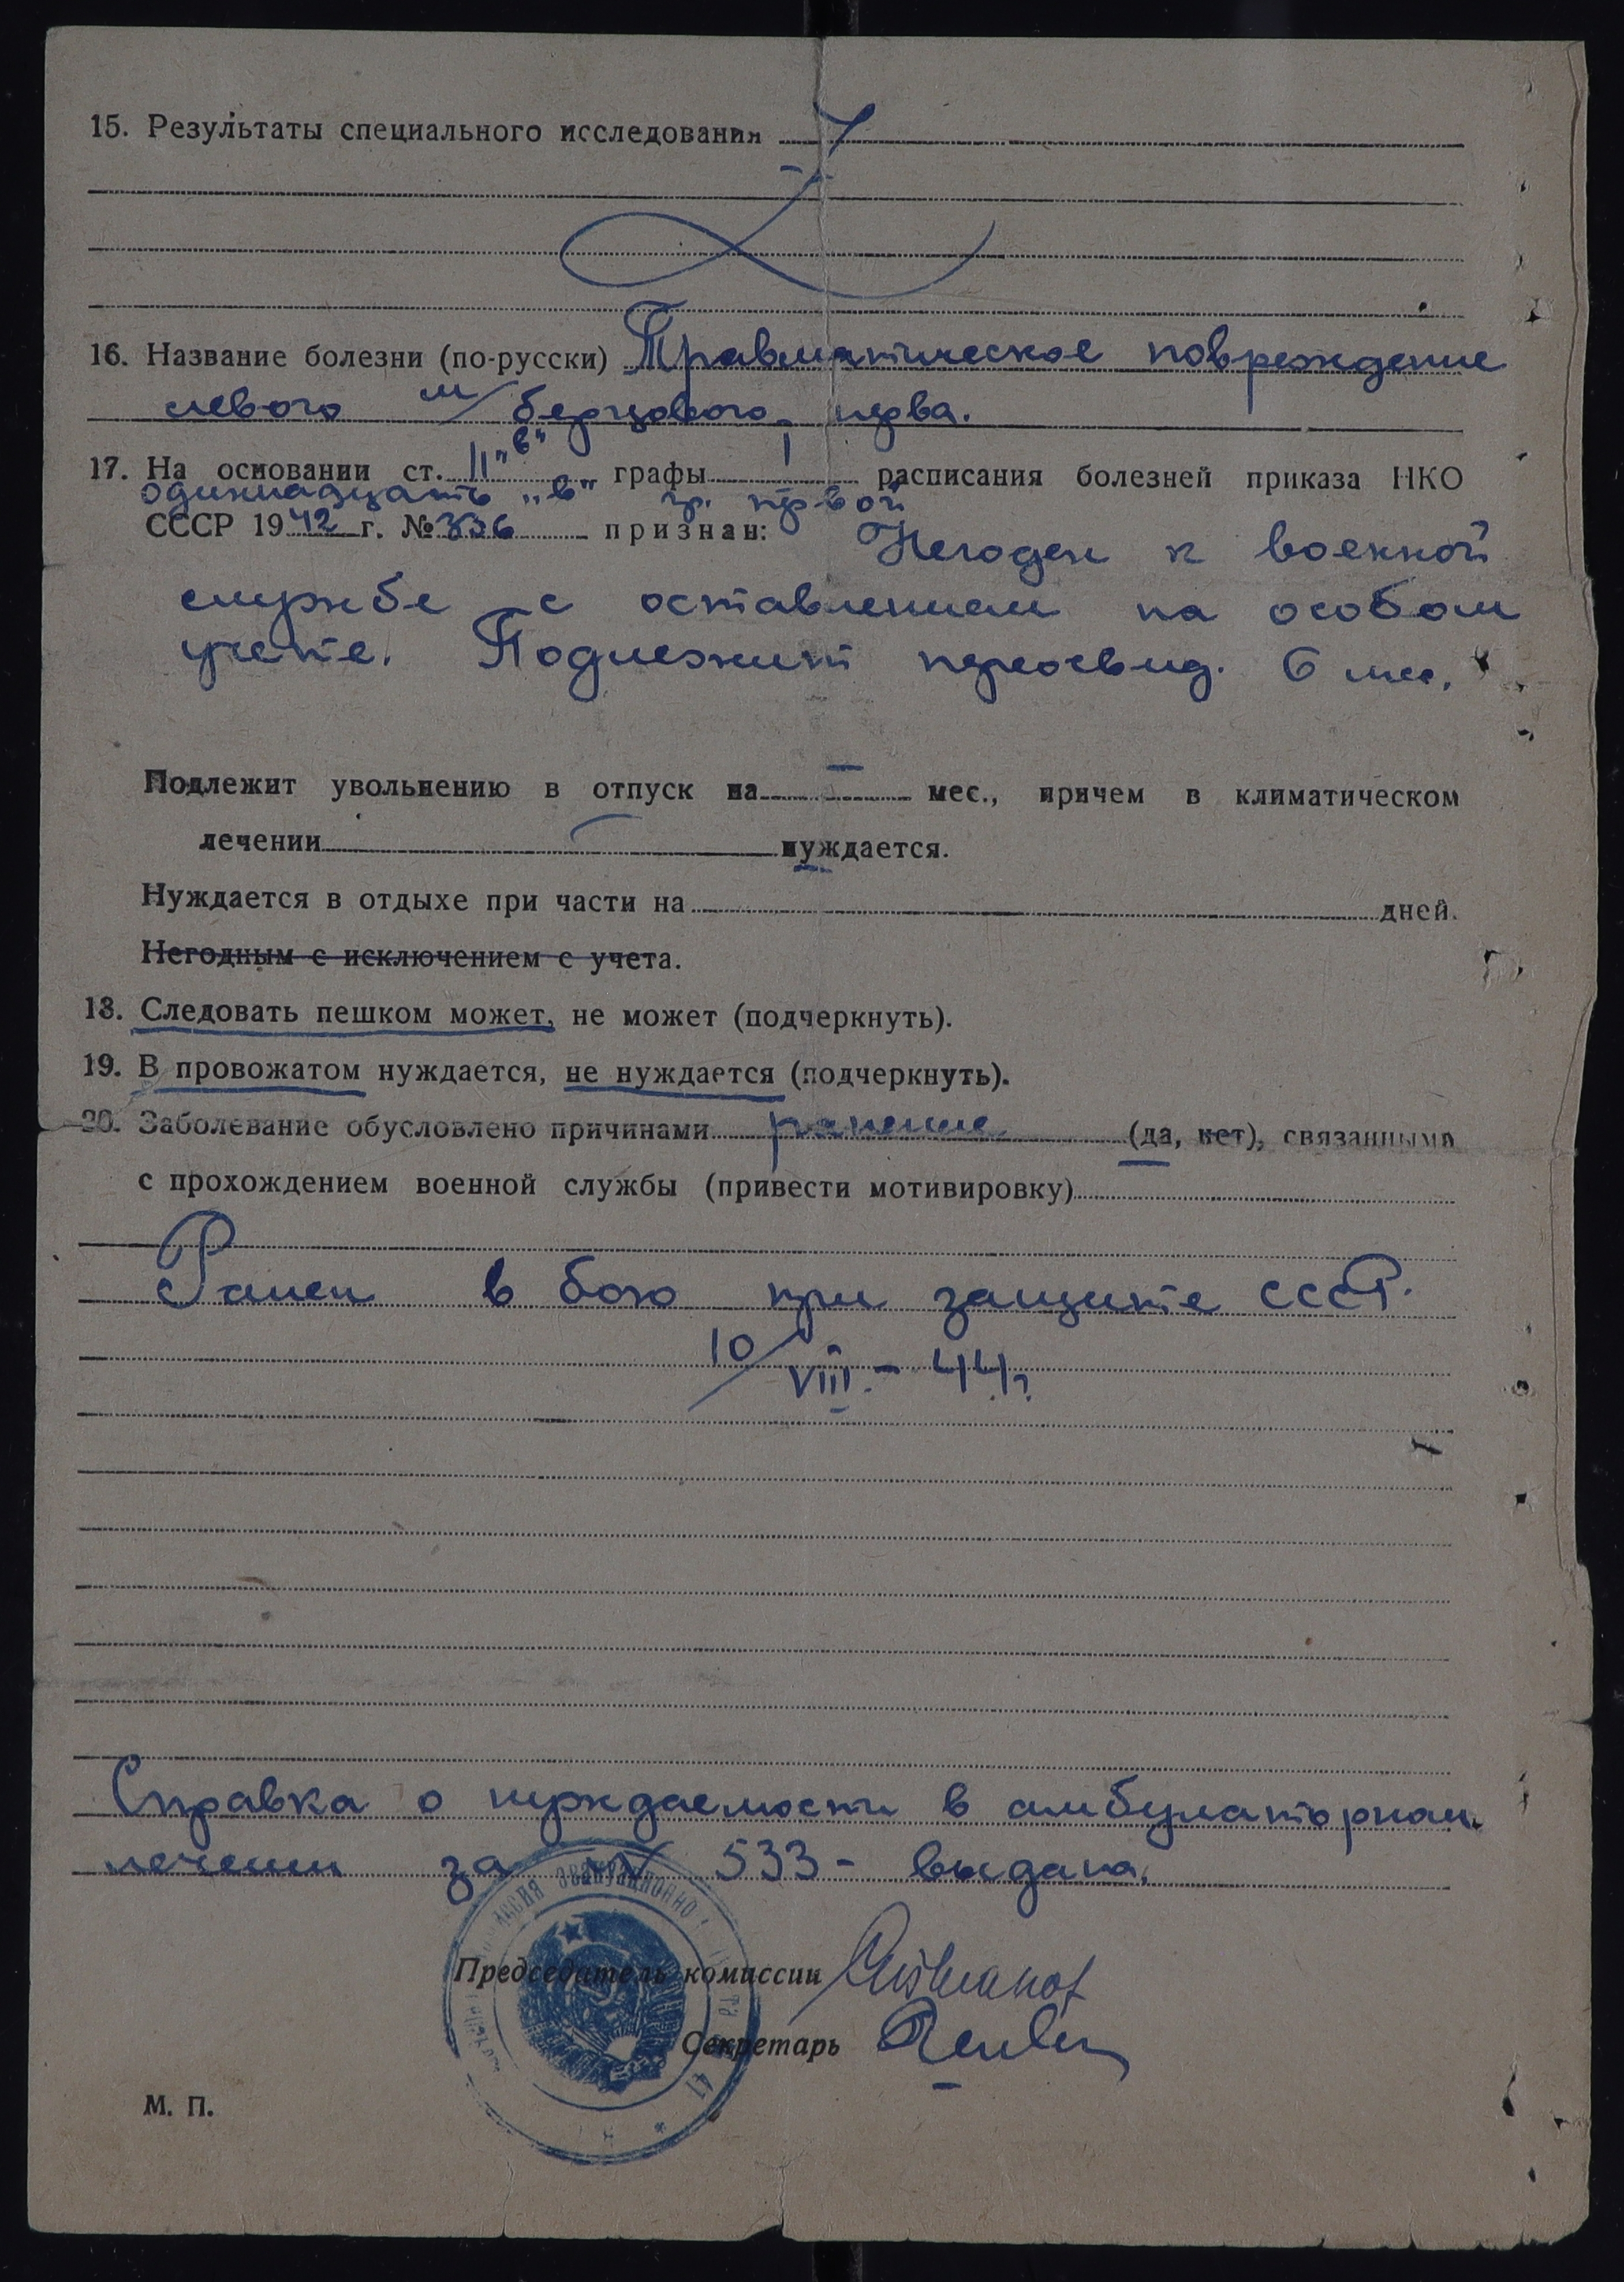 15. Результаты специального исследования
16. Название болезни (по-русски) Травматическое повреждение
левого м/берцового нерва.
17. На основании ст. 11 „в" графы I расписания болезней приказа НКО
одиннадцать „в" гр. первой
СССР 1942 г. № 336 признан: Негоден к военной
службе с оставлением на особом
учете. Подлежит переосвид. 6 мес.
Подлежит увольнению в отпуск на — мес., причем в климатическом
лечении нуждается.
Нуждается в отдыхе при части на дней.
Негодным с исключением с учета.
18. Следовать пешком может, не может (подчеркнуть).
19. В провожатом нуждается, не нуждается (подчеркнуть).
20. Заболевание обусловлено причинами ранение (да, нет), связанными
с прохождением военной службы (привести мотивировку)
Ранен в бою при защите СССР.
10/VIII - 44 г.
Справка о нуждаемости в амбулаторном
лечении за № 533 - выдана.
Председатель комиссии
Секретарь
М. П.